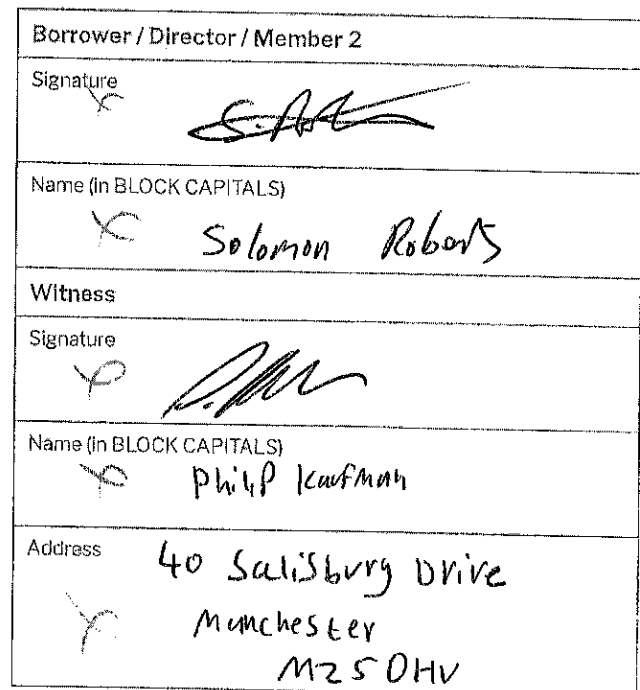 Borrower / Director / Member 2
Signature
Name (in BLOCK CAPITALS)
Solomon Roberts
Witness
Signature
Name (in BLOCK CAPITALS)
Philip Kaufman
Address
40 Salisbury Drive
Manchester
M25 0HU